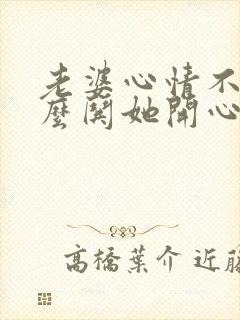 老婆心情不
麼鬨她開心
高橋葉介 近藤